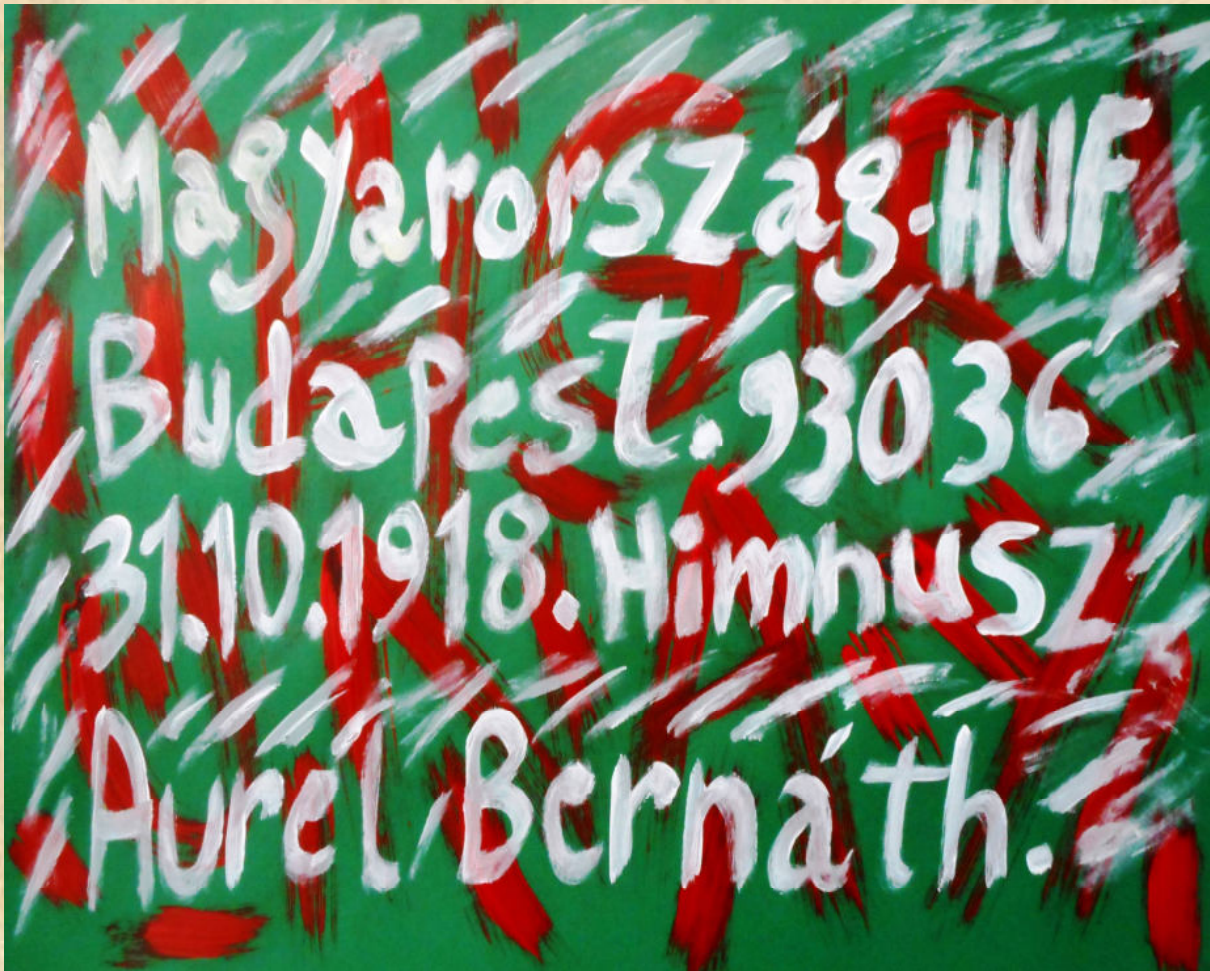 Magyarország.HUF
Budapest.93036
31.10.1918.Himnusz
Aurel Bernáth.